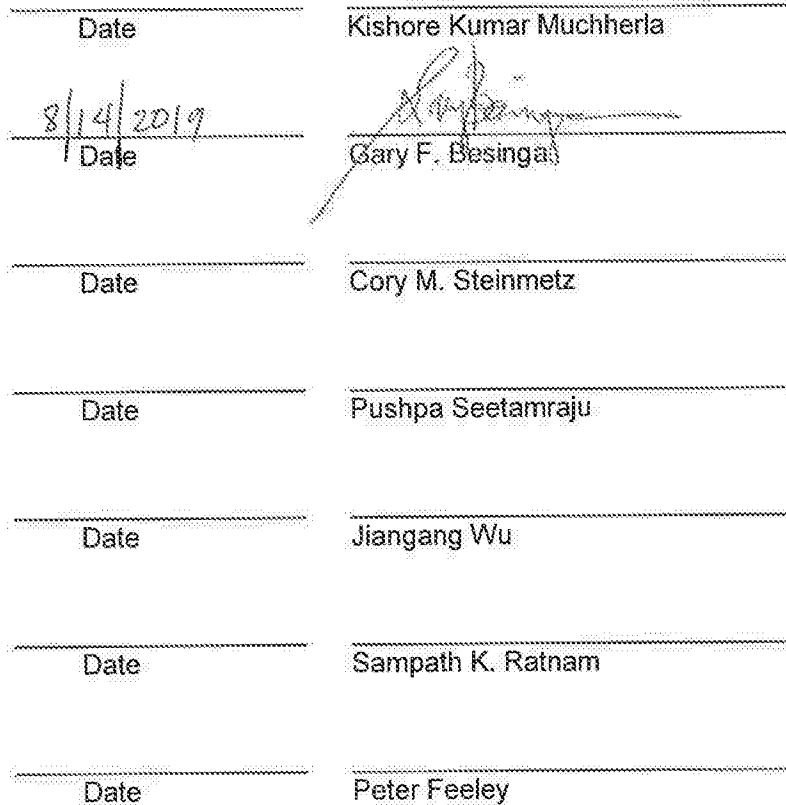 Date Kishore Kumar Muchherla
8/14/2019
Date Gary F. Besinga
Date Cory M. Steinmetz
Date Pushpa Seetamraju
Date Jiangang Wu
Date Sampath K. Ratnam
Date Peter Feeley